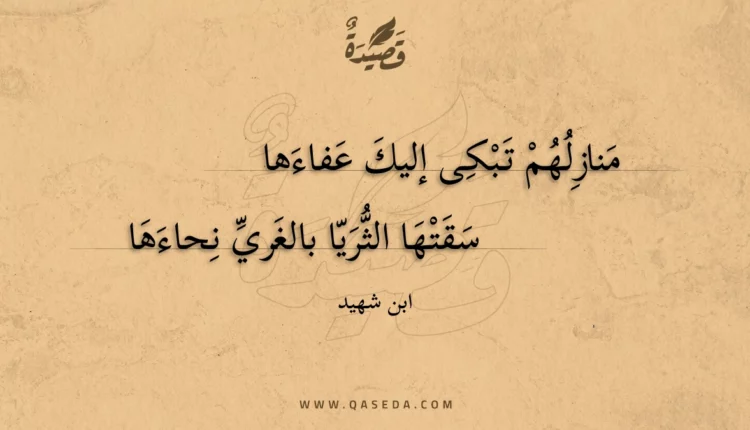 قَصِيْدَةٌ
مَنازِلُهُمْ تَبْكِى إليكَ عَفاءَها
سَقَتْهَا الثُّرَيّا بالغَريِّ نِحاءَهَا
ابن شهيد
WWW.QASEDA.COM